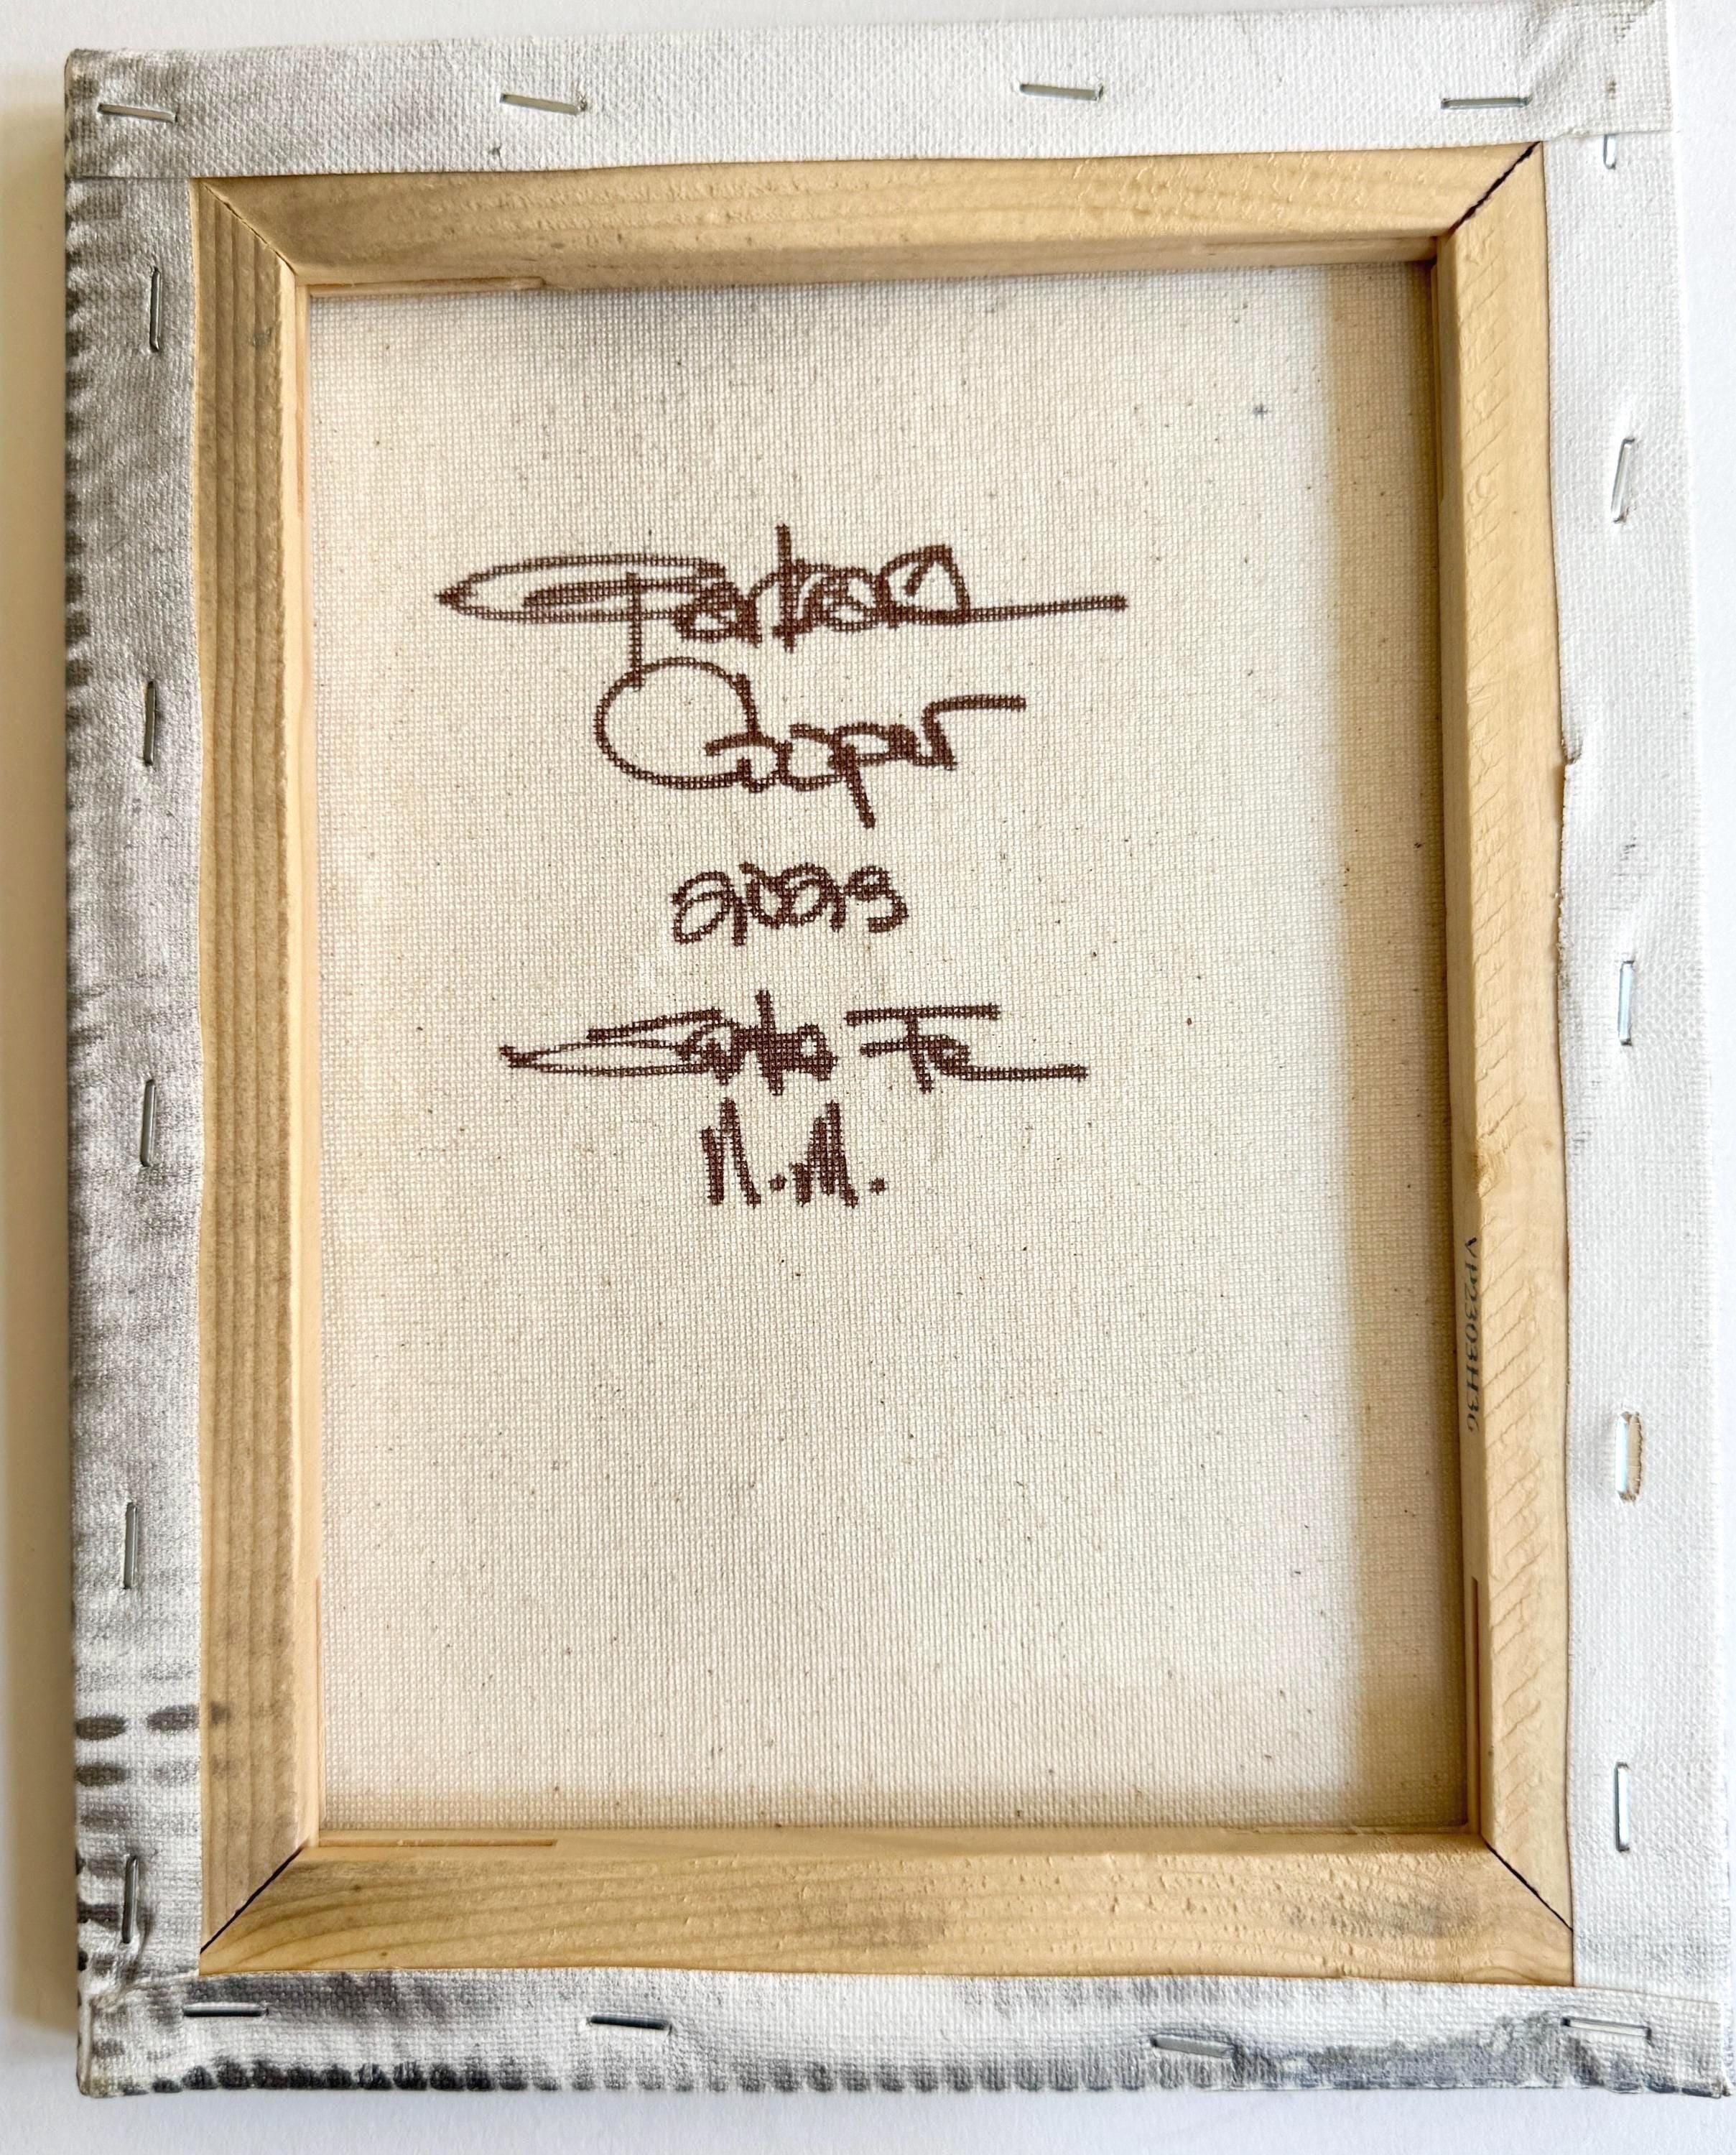 Barbara
Cooper
2023
Santa Fe
N.M.
VP2303H36